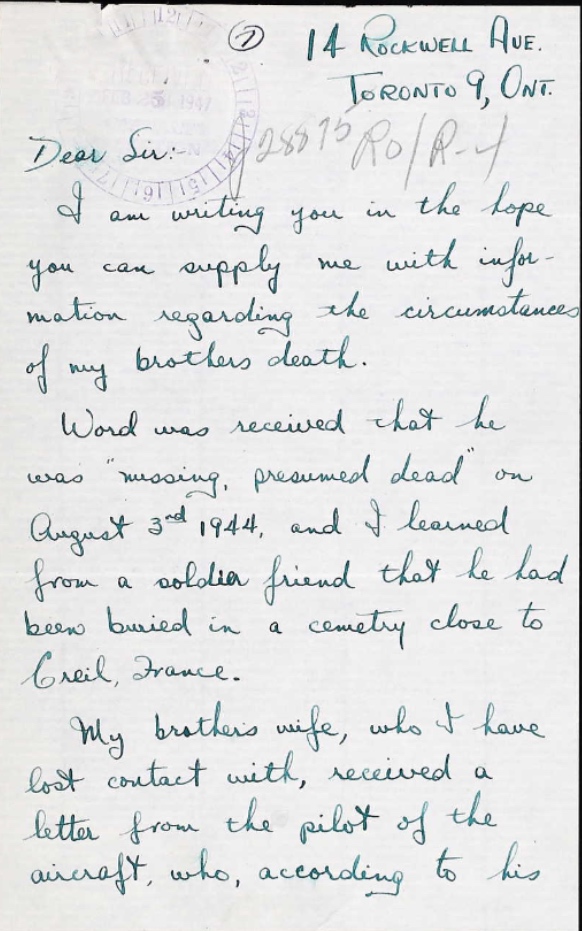 ① 14 ROCKWELL AVE.
TORONTO 9, ONT.
FEB 1947
Dear Sir:- 28875 RO/R-4
I am writing you in the hope
you can supply me with infor-
mation regarding the circumstances
of my brothers death.
Word was received that he
was "missing, presumed dead" on
August 3rd 1944, and I learned
from a soldier friend that he had
been buried in a cemetry close to
Creil, France.
My brothers wife, who I have
lost contact with, received a
letter from the pilot of the
aircraft, who, according to his